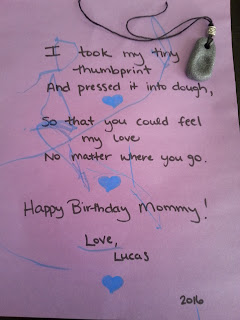 I took my tiny
thumbprint
And pressed it into dough,
So that you could feel
my love
No matter where you go.
Happy Birthday Mommy!
Love,
Lucas
2016